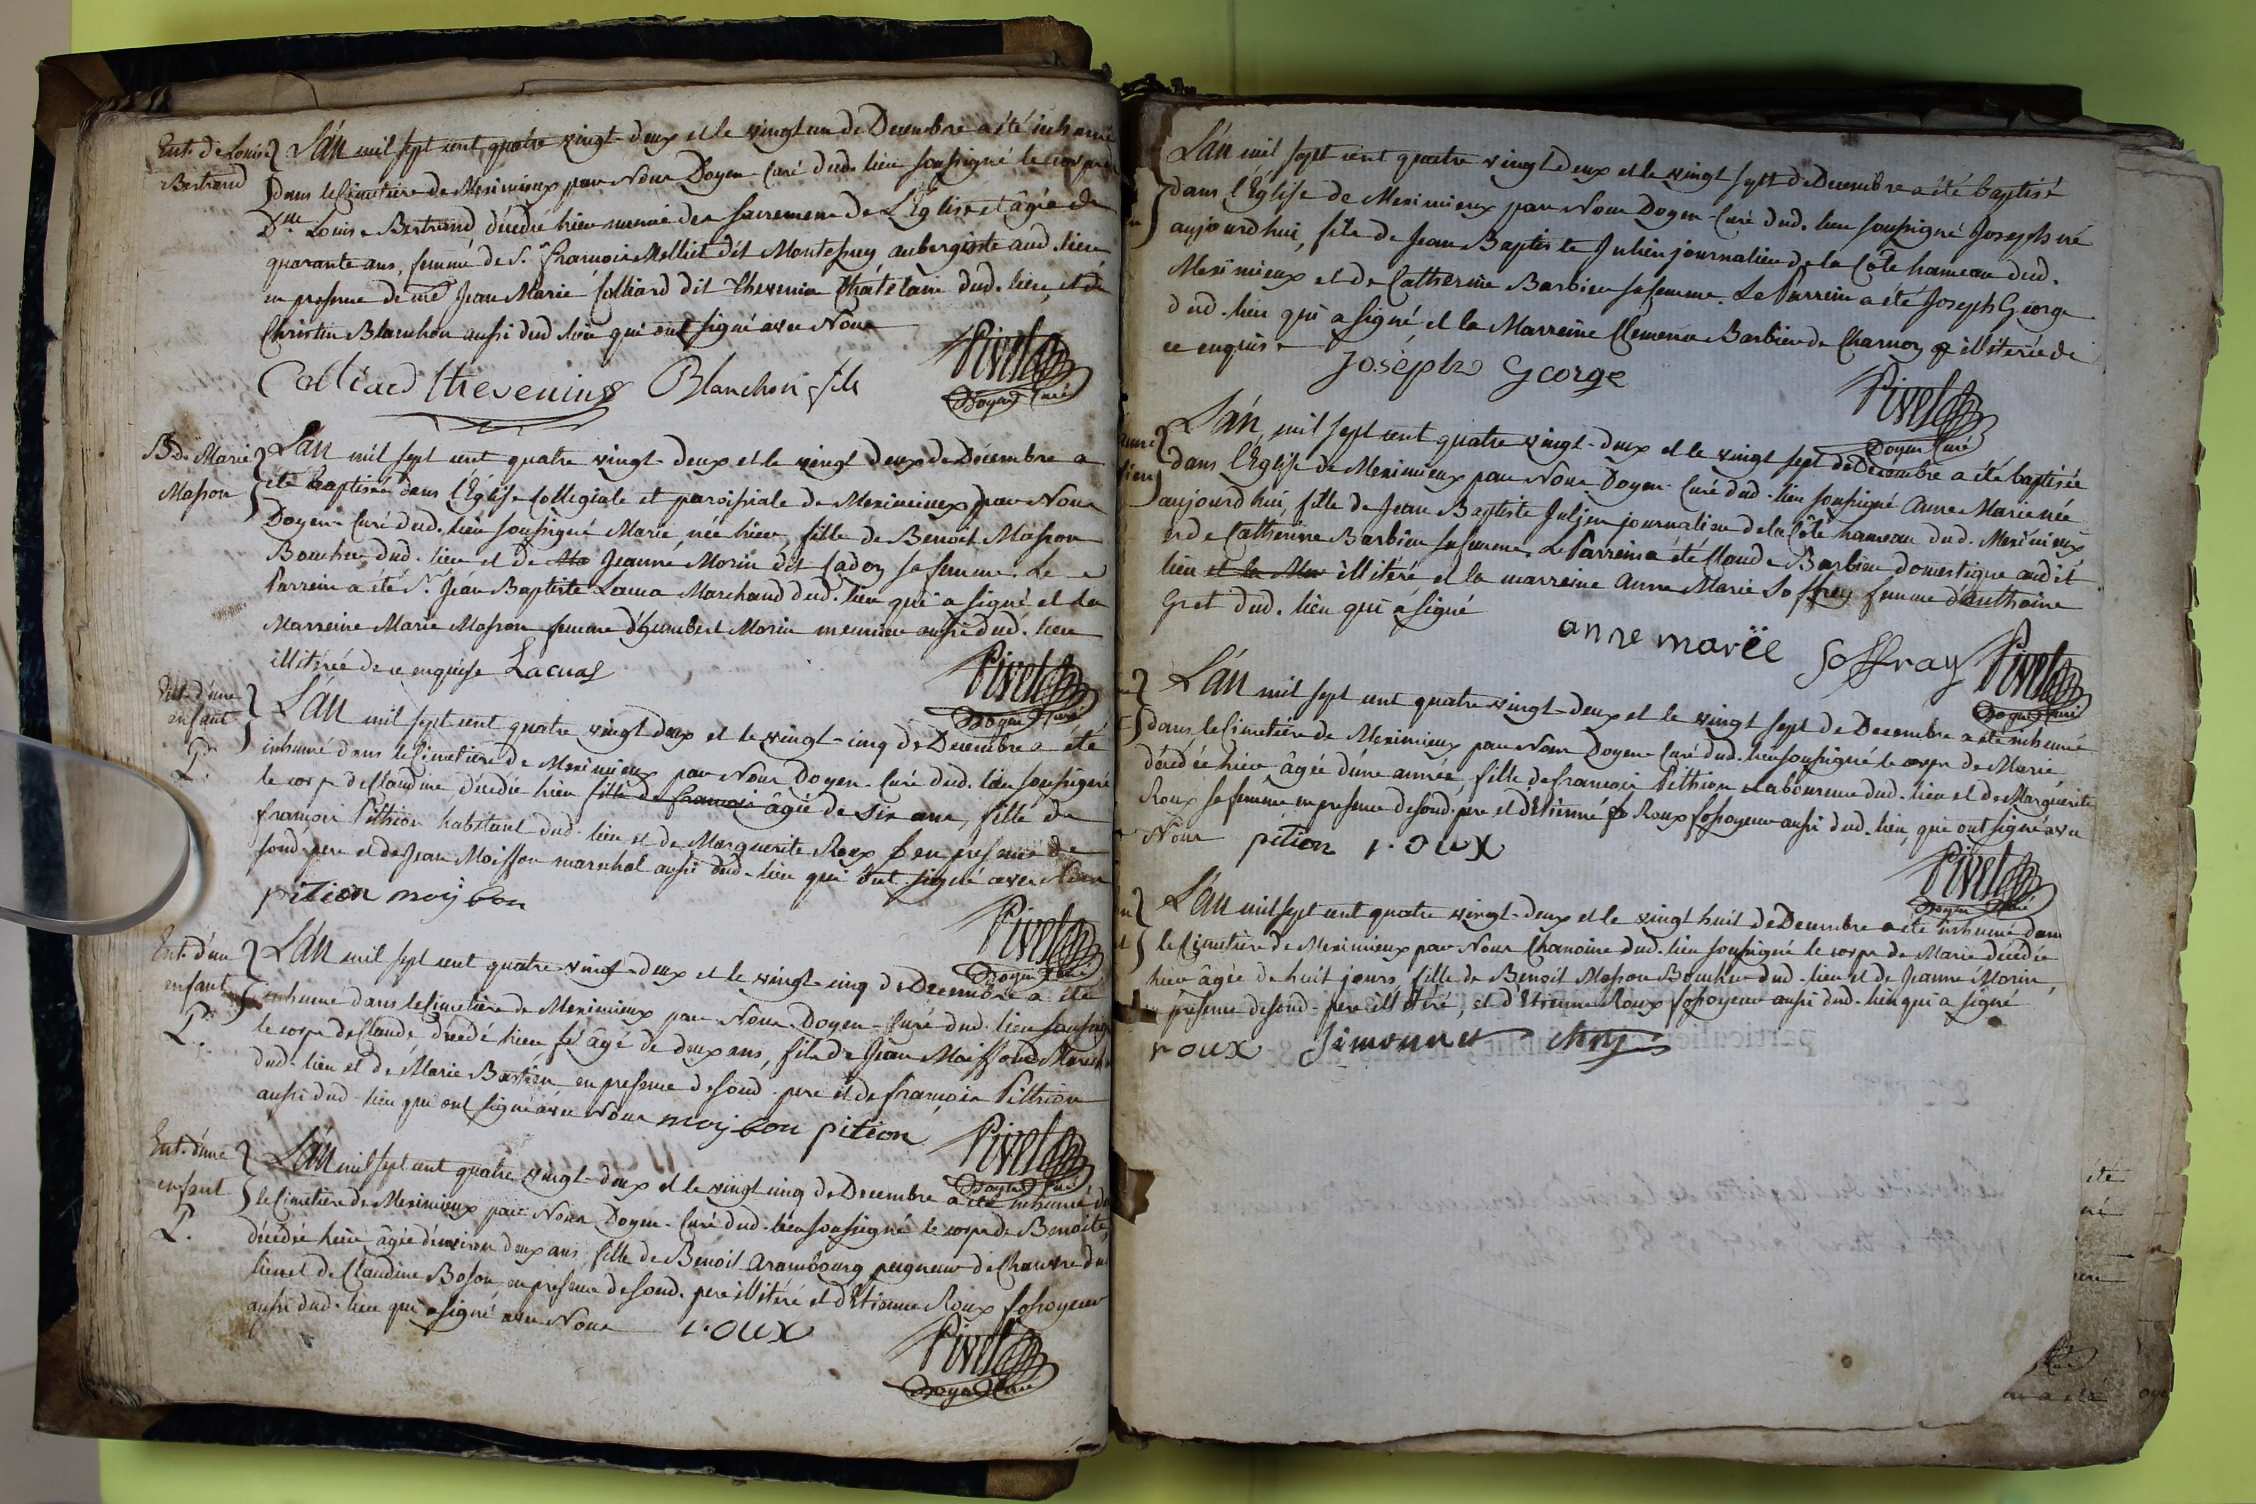 Ent. de Louise
Bertrand
L'an mil sept cent quatre vingt-deux et le vingt un de Decembre a été inhumé
dans le Cimetiere de Meximieux par Nous Doyen-Curé dud. lieu soussigné le corps de
Louise Bertrand décédée hier munie des sacremens de L'Eglise et âgée de
quarante ans, femme de Sr. francois Melliet dit Montessuy aubergiste aud. lieu
en presence de me Jean Marie Colliard dit Thevenin Châtelain dud. lieu, et de
Christin Blanchon aussi dud. lieu qui ont signé avec Nous
Colliard thevenin Blanchon fils Pivet
Doyen Curé
B. de Marie
Masson
L'an mil sept cent quatre vingt-deux et le vingt deux de Décembre a
été baptisée dans l'Église Collegiale et paroissiale de Meximieux par Nous
Doyen-Curé dud. lieu soussigné Marie, née hier, fille de Benoit Masson
Boucher dud. lieu et de Jeanne Morin dit Cadoz sa femme. Le
Parrein a été Sr. Jean Baptiste Lacua Marchand dud. lieu qui a signé et la
Marreine Marie Masson femme d'humbert Morin meunier aussi dud. lieu
illitérée de ce enquise Lacua Pivet
Doyen Curé
Ent. d'une
enfant
P.
L'an mil sept cent quatre vingt deux et le vingt-cinq de Decembre a été
inhumé dans le Cimetiere de Meximieux par Nous Doyen-Curé dud. lieu soussigné
le corps de Claudine décédée hier fille de francois âgée de six ans, fille de
francois Pithion habitant dud. lieu et de Marguerite Roux en presence de
sond. pere et de Jean Moisson marechal aussi dud. lieu qui ont signé avec Nous
pition moyson Pivet
Doyen Curé
Ent. d'un
enfant
P.
L'an mil sept cent quatre-vingt-deux et le vingt-cinq de Decembre a été
inhumé dans le Cimetiere de Meximieux par Nous Doyen-Curé dud. lieu soussigné
le corps de Claude, décedé hier âgé de deux ans, fils de Jean Moisson Marechal
dud. lieu et de Marie Bastien en presence de sond. pere et de francois Pithion
aussi dud. lieu qui ont signé avec Nous moyson pition Pivet
Doyen Curé
Ent. d'une
enfant
P.
L'an mil sept cent quatre vingt-deux et le vingt cinq de Decembre a été inhumé dans
le Cimetiere de Meximieux par Nous Doyen-Curé dud. lieu soussigné le corps de Benoite,
décédée hier âgée d'environ deux ans, fille de Benoit Arambourg peigneur de Chanvre dud.
lieu et de Claudine Boson, en presence de sond. pere illitéré et d'Etienne Roux fossoyeur
aussi dud. lieu qui a signé avec Nous roux Pivet
Doyen Curé
L'an mil sept cent quatre vingt deux et le vingt sept de Decembre a été baptisé
dans l'Église de Meximieux par Nous Doyen-Curé dud. lieu soussigné Joseph né
aujourd'hui, fils de Jean Baptiste Julien journalier de la Côte hameau dud.
Meximieux et de Catherine Barbier sa femme. Le Parrein a été Joseph George
dud. lieu qui a signé et la Marreine Clémence Barbier de Charnoz illiterée de
ce enquise Joséph George Pivet
Doyen Curé
L'an mil sept cent quatre vingt-deux et le vingt sept de Decembre a été baptisée
dans l'Église de Meximieux par Nous Doyen-Curé dud. lieu soussigné Anne Marie née
aujourd'hui, fille de Jean Baptiste Julien journalier de la Côte hameau dud. Meximieux
et de Catherine Barbier sa femme. Le Parrein a été Claude Barbier domestique audit
lieu et la Mar illiteré et la marreine Anne Marie Soffrey femme d'anthoine
Gret dud. lieu qui a signé
anne marie soffray Pivet
Doyen Curé
L'an mil sept cent quatre vingt-deux et le vingt sept de Decembre a été inhumé
dans le Cimetiere de Meximieux par Nous Doyen-Curé dud. lieu soussigné le corps de Marie
décédée hier, âgée d'une année, fille de francois Pithion Laboureur dud. lieu et de Marguerite
Roux sa femme en presence de sond. pere et d'Etienne Roux fossoyeur aussi dud. lieu, qui ont signé avec
Nous pition roux Pivet
Doyen Curé
L'an mil sept cent quatre vingt-deux et le vingt huit de Decembre a été inhumé dans
le Cimetiere de Meximieux par Nous Chanoine dud. lieu soussigné le corps de Marie décédée
hier âgée de huit jours, fille de Benoit Masson Boucher dud. lieu et de Jeanne Morin,
en presence de sond. pere illitéré, et d'Etienne Roux fossoyeur aussi dud. lieu qui a signé
roux Simonnet chne